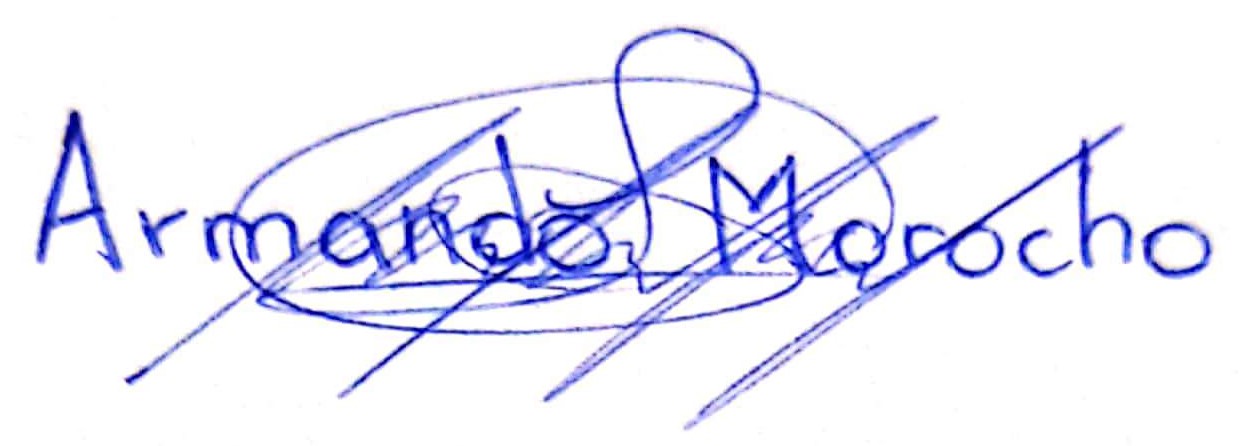 Armando Morocho